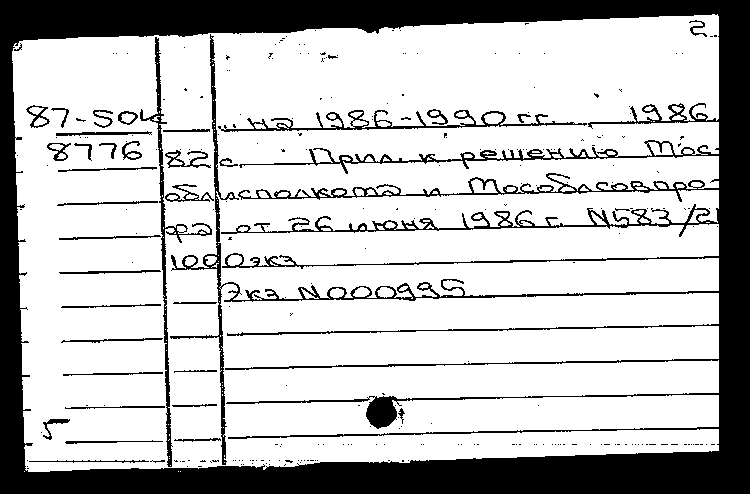 2
87-50к ... на 1986-1990 гг. , 1986.
8776 82 с. Прил. к решению Мос-
облисполкома и Мособлсовпро-
фа от 26 июня 1986 г. N583/21
1000экз.
Экз. N000995
5